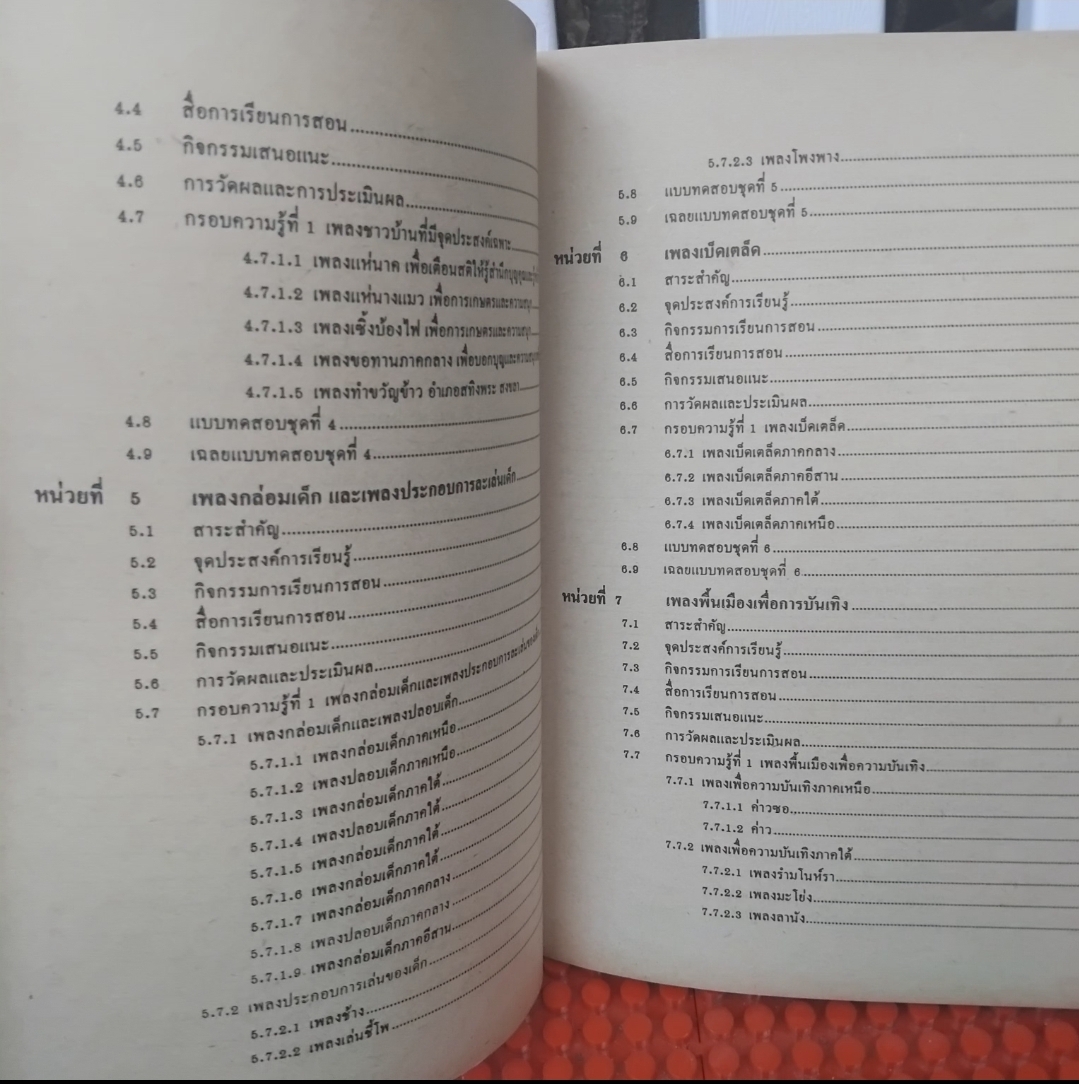 4.4 สื่อการเรียนการสอน
4.5 กิจกรรมเสนอแนะ
4.6 การวัดผลและการประเมินผล
4.7 กรอบความรู้ที่ 1 เพลงชาวบ้านที่มีจุดประสงค์เฉพาะ
4.7.1.1 เพลงแห่นาค เพื่อเตือนสติให้รู้สำนึกบุญคุณ
4.7.1.2 เพลงแห่นางแมว เพื่อการเกษตรและความสนุก
4.7.1.3 เพลงเซิ้งบ้องไฟ เพื่อการเกษตรและความสนุก
4.7.1.4 เพลงขอทานภาคกลาง เพื่อบอกบุญและความสนุก
4.7.1.5 เพลงทำขวัญข้าว อำเภอสทิงพระ สงขลา
4.8 แบบทดสอบชุดที่ 4
4.9 เฉลยแบบทดสอบชุดที่ 4
หน่วยที่ 5 เพลงกล่อมเด็ก และเพลงประกอบการละเล่นเด็ก
5.1 สาระสำคัญ
5.2 จุดประสงค์การเรียนรู้
5.3 กิจกรรมการเรียนการสอน
5.4 สื่อการเรียนการสอน
5.5 กิจกรรมเสนอแนะ
5.6 การวัดผลและประเมินผล
5.7 กรอบความรู้ที่ 1 เพลงกล่อมเด็กและเพลงประกอบการละเล่นของเด็ก
5.7.1 เพลงกล่อมเด็กและเพลงปลอบเด็ก
5.7.1.1 เพลงกล่อมเด็กภาคเหนือ
5.7.1.2 เพลงปลอบเด็กภาคเหนือ
5.7.1.3 เพลงกล่อมเด็กภาคใต้
5.7.1.4 เพลงปลอบเด็กภาคใต้
5.7.1.5 เพลงกล่อมเด็กภาคใต้
5.7.1.6 เพลงกล่อมเด็กภาคใต้
5.7.1.7 เพลงกล่อมเด็กภาคกลาง
5.7.1.8 เพลงปลอบเด็กภาคกลาง
5.7.1.9 เพลงกล่อมเด็กภาคอีสาน
5.7.2 เพลงประกอบการเล่นของเด็ก
5.7.2.1 เพลงช้าง
5.7.2.2 เพลงเล่นขี้โพ
5.7.2.3 เพลงโพงพาง
5.8 แบบทดสอบชุดที่ 5
5.9 เฉลยแบบทดสอบชุดที่ 5
หน่วยที่ 6 เพลงเบ็ดเตล็ด
6.1 สาระสำคัญ
6.2 จุดประสงค์การเรียนรู้
6.3 กิจกรรมการเรียนการสอน
6.4 สื่อการเรียนการสอน
6.5 กิจกรรมเสนอแนะ
6.6 การวัดผลและประเมินผล
6.7 กรอบความรู้ที่ 1 เพลงเบ็ดเตล็ด
6.7.1 เพลงเบ็ดเตล็ดภาคกลาง
6.7.2 เพลงเบ็ดเตล็ดภาคอีสาน
6.7.3 เพลงเบ็ดเตล็ดภาคใต้
6.7.4 เพลงเบ็ดเตล็ดภาคเหนือ
6.8 แบบทดสอบชุดที่ 6
6.9 เฉลยแบบทดสอบชุดที่ 6
หน่วยที่ 7 เพลงพื้นเมืองเพื่อการบันเทิง
7.1 สาระสำคัญ
7.2 จุดประสงค์การเรียนรู้
7.3 กิจกรรมการเรียนการสอน
7.4 สื่อการเรียนการสอน
7.5 กิจกรรมเสนอแนะ
7.6 การวัดผลและประเมินผล
7.7 กรอบความรู้ที่ 1 เพลงพื้นเมืองเพื่อความบันเทิง
7.7.1 เพลงเพื่อความบันเทิงภาคเหนือ
7.7.1.1 ค่าวซอ
7.7.1.2 ค่าว
7.7.2 เพลงเพื่อความบันเทิงภาคใต้
7.7.2.1 เพลงรำมโนห์รา
7.7.2.2 เพลงมะโย่ง
7.7.2.3 เพลงลานัง